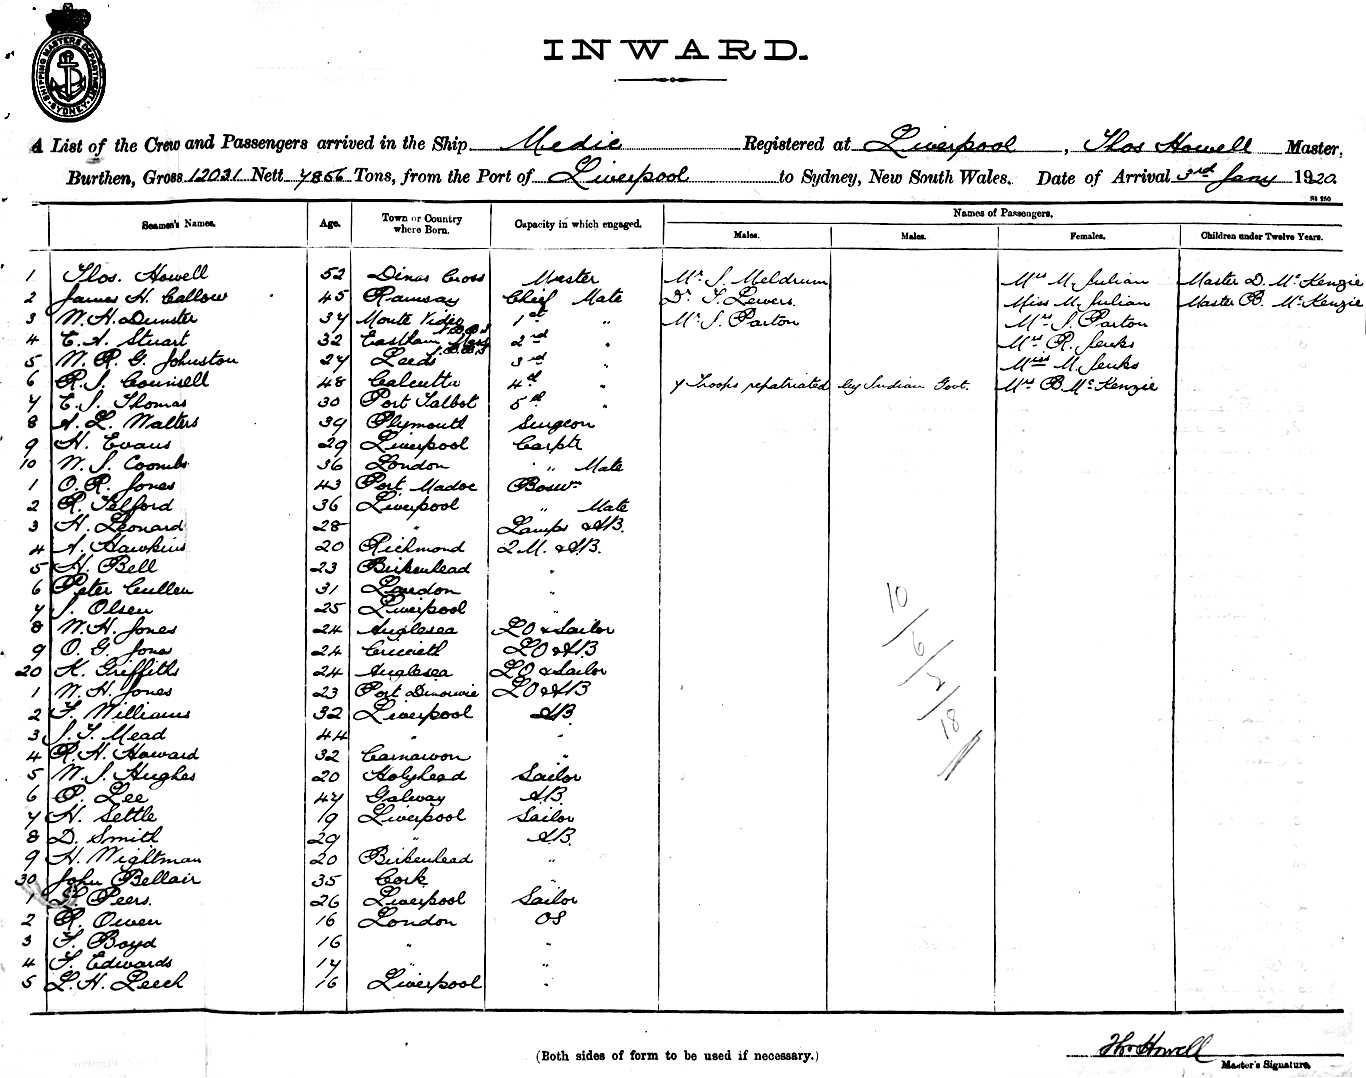 SHIPPING MASTERS DEPARTMENT SYDNEY
INWARD.
A List of the Crew and Passengers arrived in the Ship Medic Registered at Liverpool, Thos Howell Master,
Burthen, Gross 12031 Nett 7856 Tons, from the Port of Liverpool to Sydney, New South Wales. Date of Arrival 3rd Jany 1920.
Seamen's Names. Age. Town or Country where Born. Capacity in which engaged. Names of Passengers.
Males. Males. Females. Children under Twelve Years.
1 Thos. Howell 52 Dinas Cross Master Mr. J. Meldrum Mrs M. Julian Master D. McKenzie
2 James H. Callow 45 Ramsay Chief Mate Dr. Lewers. Miss M. Julian Master B. McKenzie
3 W. H. Dunster 37 Monte Video 1st " Mr. J. Parton Mrs. J. Parton
4 E. A. Stuart 32 Eastham 2nd " Mrs R. Jenks
5 W. R. G. Johnston 27 Leeds 3rd " Miss M. Jenks
6 R. J. Counsell 48 Calcutta 4th " 7 Troops repatriated by Indian Govt. Mrs B. McKenzie
7 E. J. Thomas 30 Port Talbot 5th "
8 A. L. Walters 39 Plymouth Surgeon
9 H. Evans 29 Liverpool Carptr
10 W. J. Coombs 36 London " Mate
1 O. R. Jones 43 Port Madoc Bosun
2 R. Telford 36 Liverpool " Mate
3 H. Leonard 28 " Lamps & AB.
4 A. Hawkins 20 Richmond 2.M. & AB.
5 H. Bell 23 Birkenhead "
6 Peter Cullen 31 London "
7 J. Olsen 25 Liverpool "
8 W. H. Jones 24 Anglesea LO & Sailor
9 O. G. Jones 24 Criccieth LO & AB
20 K. Griffiths 24 Anglesea LO & Sailor
1 W. H. Jones 23 Port Dinorwic LO & AB
2 T. Williams 32 Liverpool AB
3 J. T. Mead 44 " "
4 R. H. Howard 32 Carnarvon "
5 W. J. Hughes 20 Holyhead Sailor
6 P. Lee 47 Galway AB.
7 H. Settle 19 Liverpool Sailor
8 D. Smith 29 " AB.
9 H. Wightman 20 Birkenhead "
30 John Bellair 35 Cork "
1 Peers. 26 Liverpool Sailor
2 R. Owen 16 London OS
3 T. Boyd 16 " "
4 T. Edwards 17 " "
5 L. H. Leech 16 Liverpool "
10/6/2/18
(Both sides of form to be used if necessary.)
Thos Howell
Master's Signature.